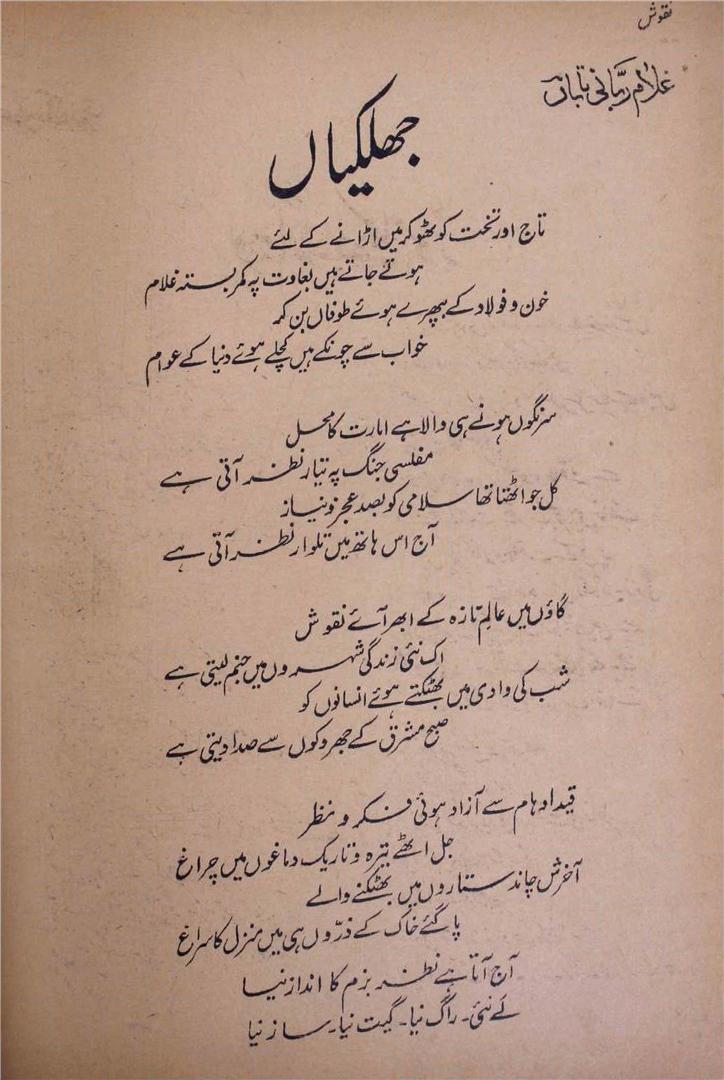 نقوش
غلام ربّانی تاباںؔ
جھلکیاں
تاج اور تخت کو ٹھوکر میں اڑانے کے لئے
ہوتے جاتے ہیں بغاوت پہ کمر بستہ غلام
خون و فولاد کے بپھرے ہوئے طوفاں بن کر
خواب سے چونکے ہیں کچلے ہوئے دنیا کے عوام
سرنگوں ہونے ہی والا ہے امارت کا محل
مفلسی جنگ پہ تیار نظر آتی ہے
کل جو اٹھتا تھا سلامی کو بصد عجز و نیاز
آج اس ہاتھ میں تلوار نظر آتی ہے
گاؤں میں عالمِ تازہ کے ابھر آئے نقوش
اک نئی زندگی شہروں میں جنم لیتی ہے
شب کی وادی میں بھٹکتے ہوئے انسانوں کو
صبح مشرق کے جھروکوں سے صدا دیتی ہے
قید اوہام سے آزاد ہوئی فکر و نظر
جل اٹھے تیرہ و تاریک دماغوں میں چراغ
آخرش چاند ستاروں میں بھٹکنے والے
پا گئے خاک کے ذرّوں ہی میں منزل کا سراغ
آج آتا ہے نظر بزم کا انداز نیا
لَے نئی۔ راگ نیا۔ گیت نیا۔ ساز نیا